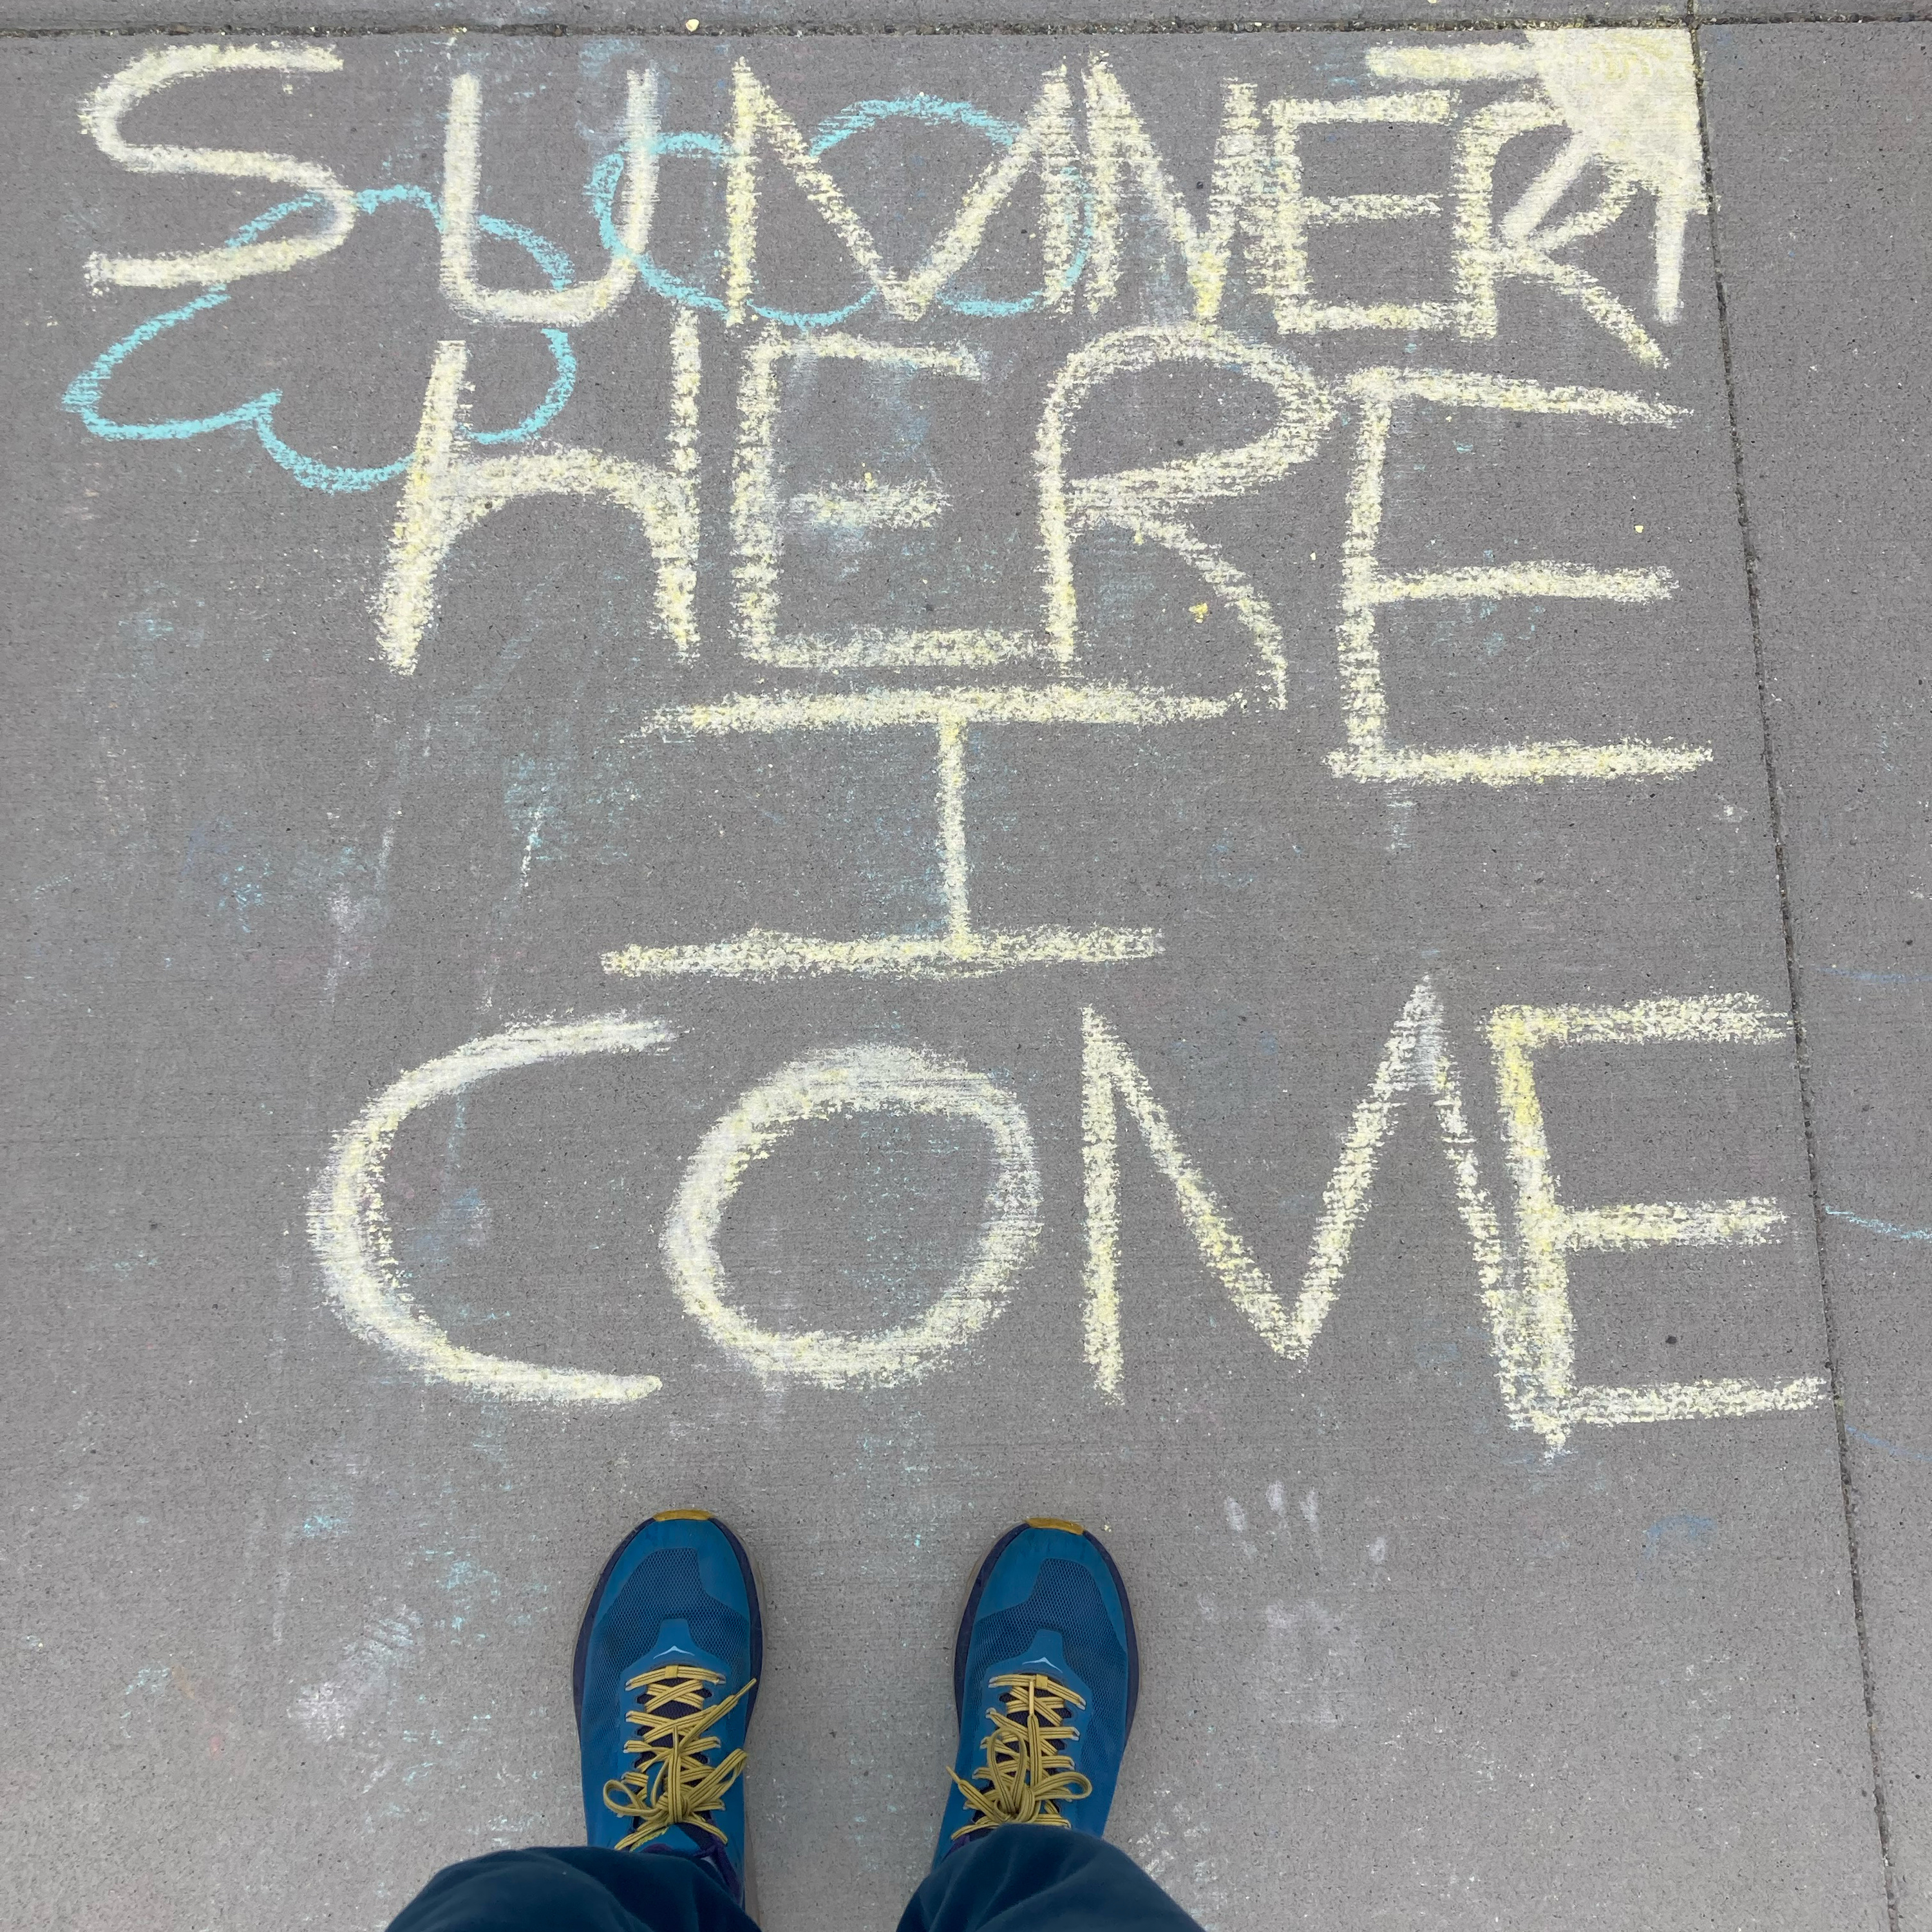 SUMMER
HERE
I
COME